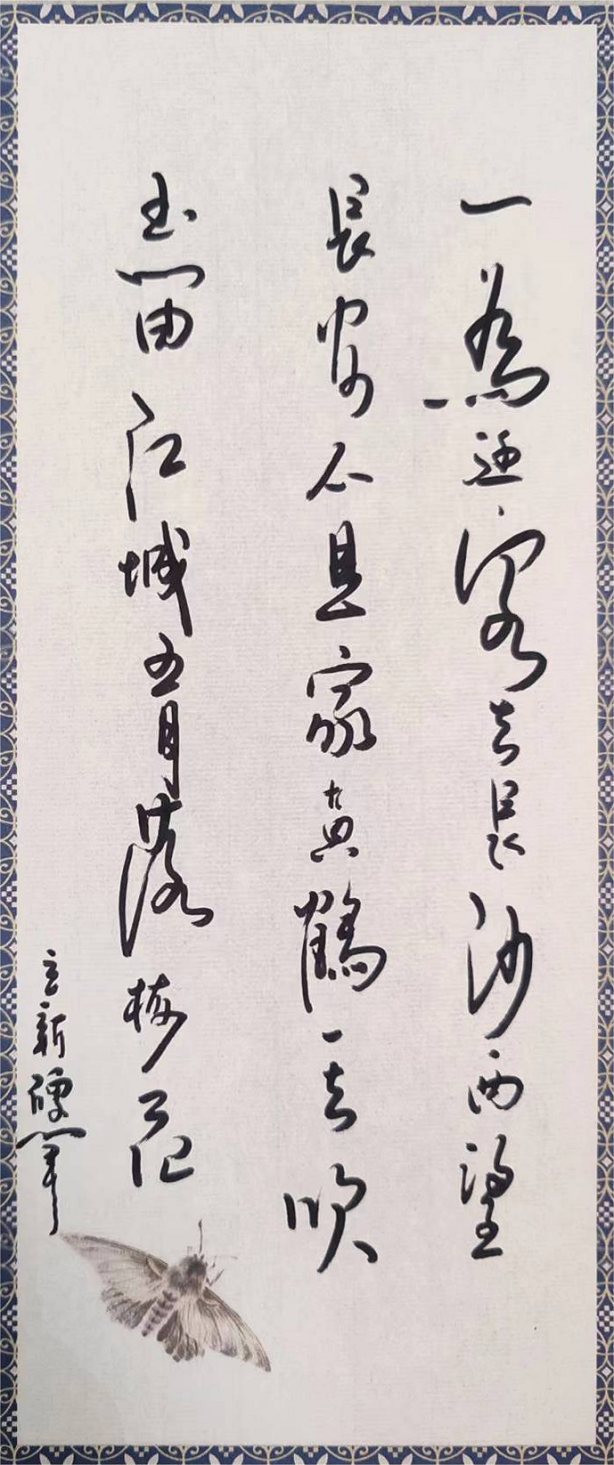 一為迁客去長沙西望
長安不見家黄鶴一去吹
玉笛江城五月落梅花
立新硬筆